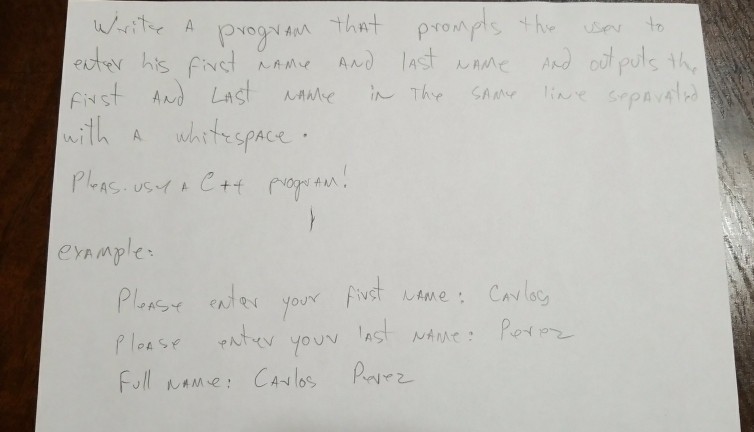 Write A program that prompts the user to
enter his first name and last name and outputs the
first and last name in the same line separated
with a whitespace.
Pleas. use a C++ program!
example:
Please enter your first name: Carlos
Please enter your last name: Perez
Full name: Carlos Perez